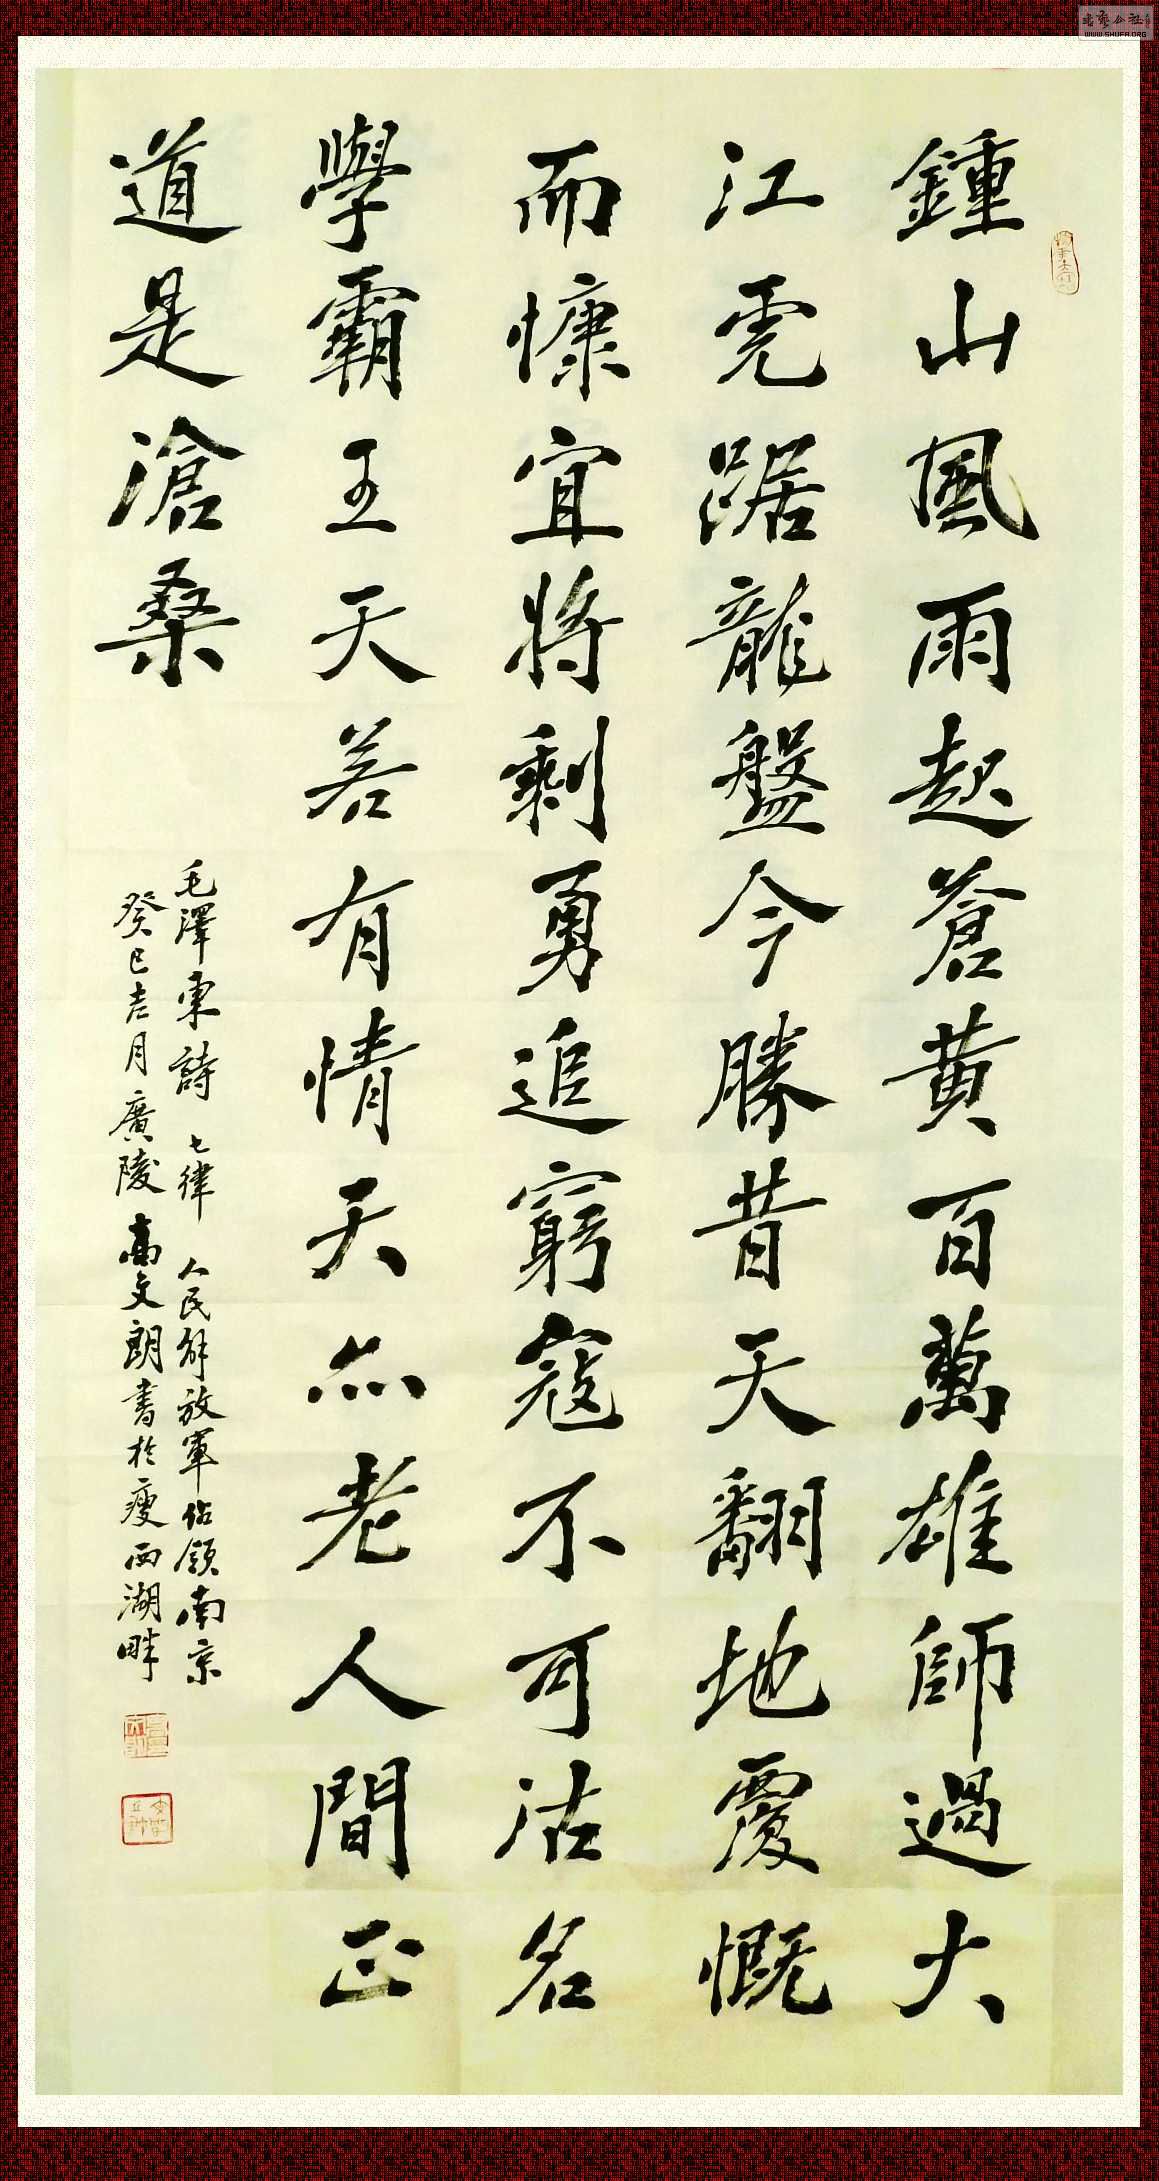 鍾山風雨起蒼黄百萬雄師過大
江虎踞龍盤今勝昔天翻地覆慨
而慷宜將剩勇追窮寇不可沽名
學霸王天若有情天亦老人間正
道是滄桑
毛澤東詩 七律 人民解放軍佔領南京
癸巳吉月廣陵高文朗書於瘦西湖畔
WWW.SHUFA.ORG